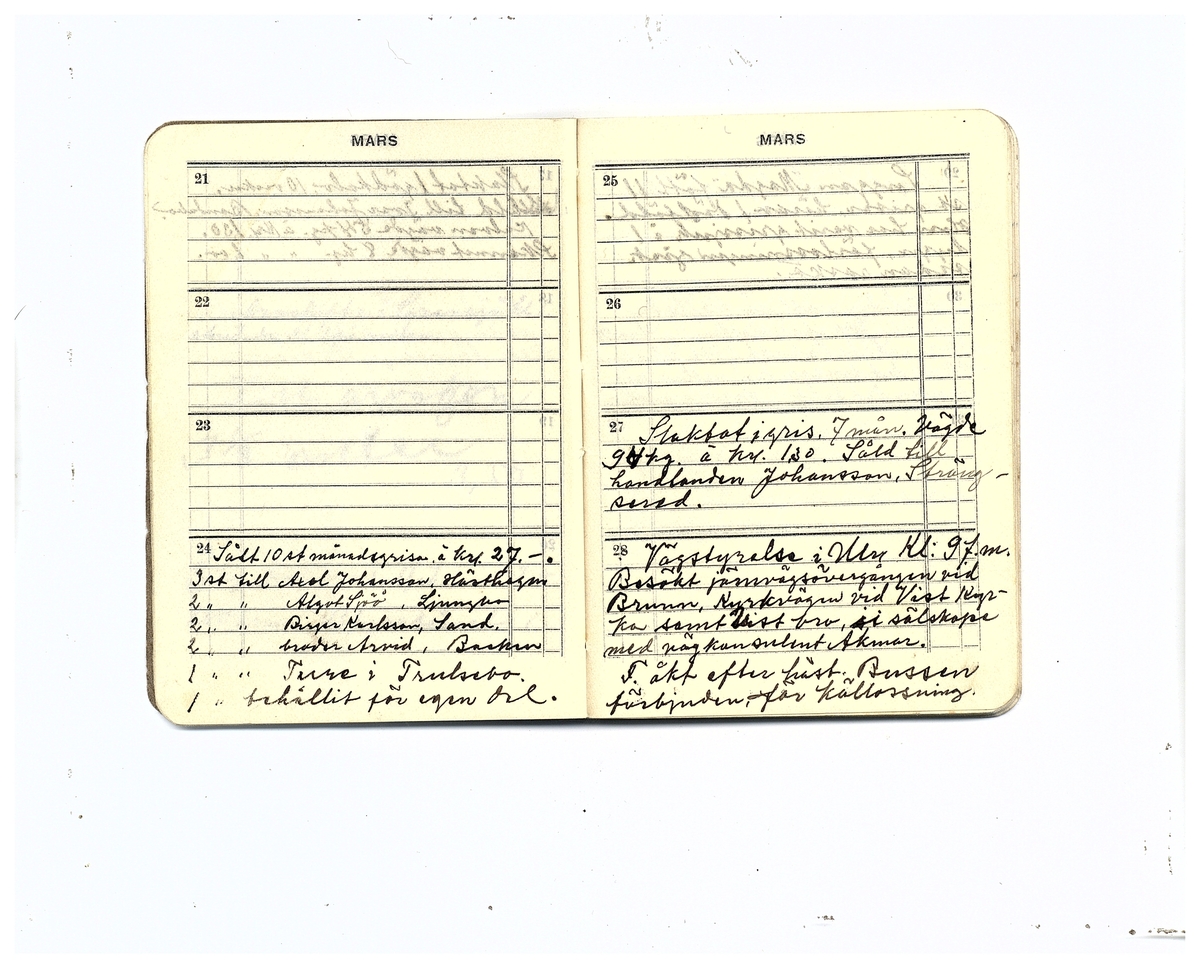 MARS
21
22
23
24 Sålt 10 st månadsgrisar à kr. 27.-
3 st till Axel Johansson, Hästhagen
2 " " Algot Sjöö, Ljungbo
2 " " Birger Karlsson, Sand.
2 " " broder Arvid, Backen
1 " " Ture i Trulsebo.
1 " behållit för egen del.
MARS
25
26
27 Slaktat 1 gris. 7 mån. Vägde
94 kg. à kr. 1.30. Såld till
handlanden Johansson, Sträng-
sered.
28 Vägstyrelse i Ulr. Kl: 9 f.m.
Besökt järnvägsövergången vid
Brunn, Kyrkvägen vid Vist Kyr-
ka samt Vist bro, i sälskap
med vägkonsulent Akmar.
F. åkt efter häst. Bussen
förbjuden, för källossning.